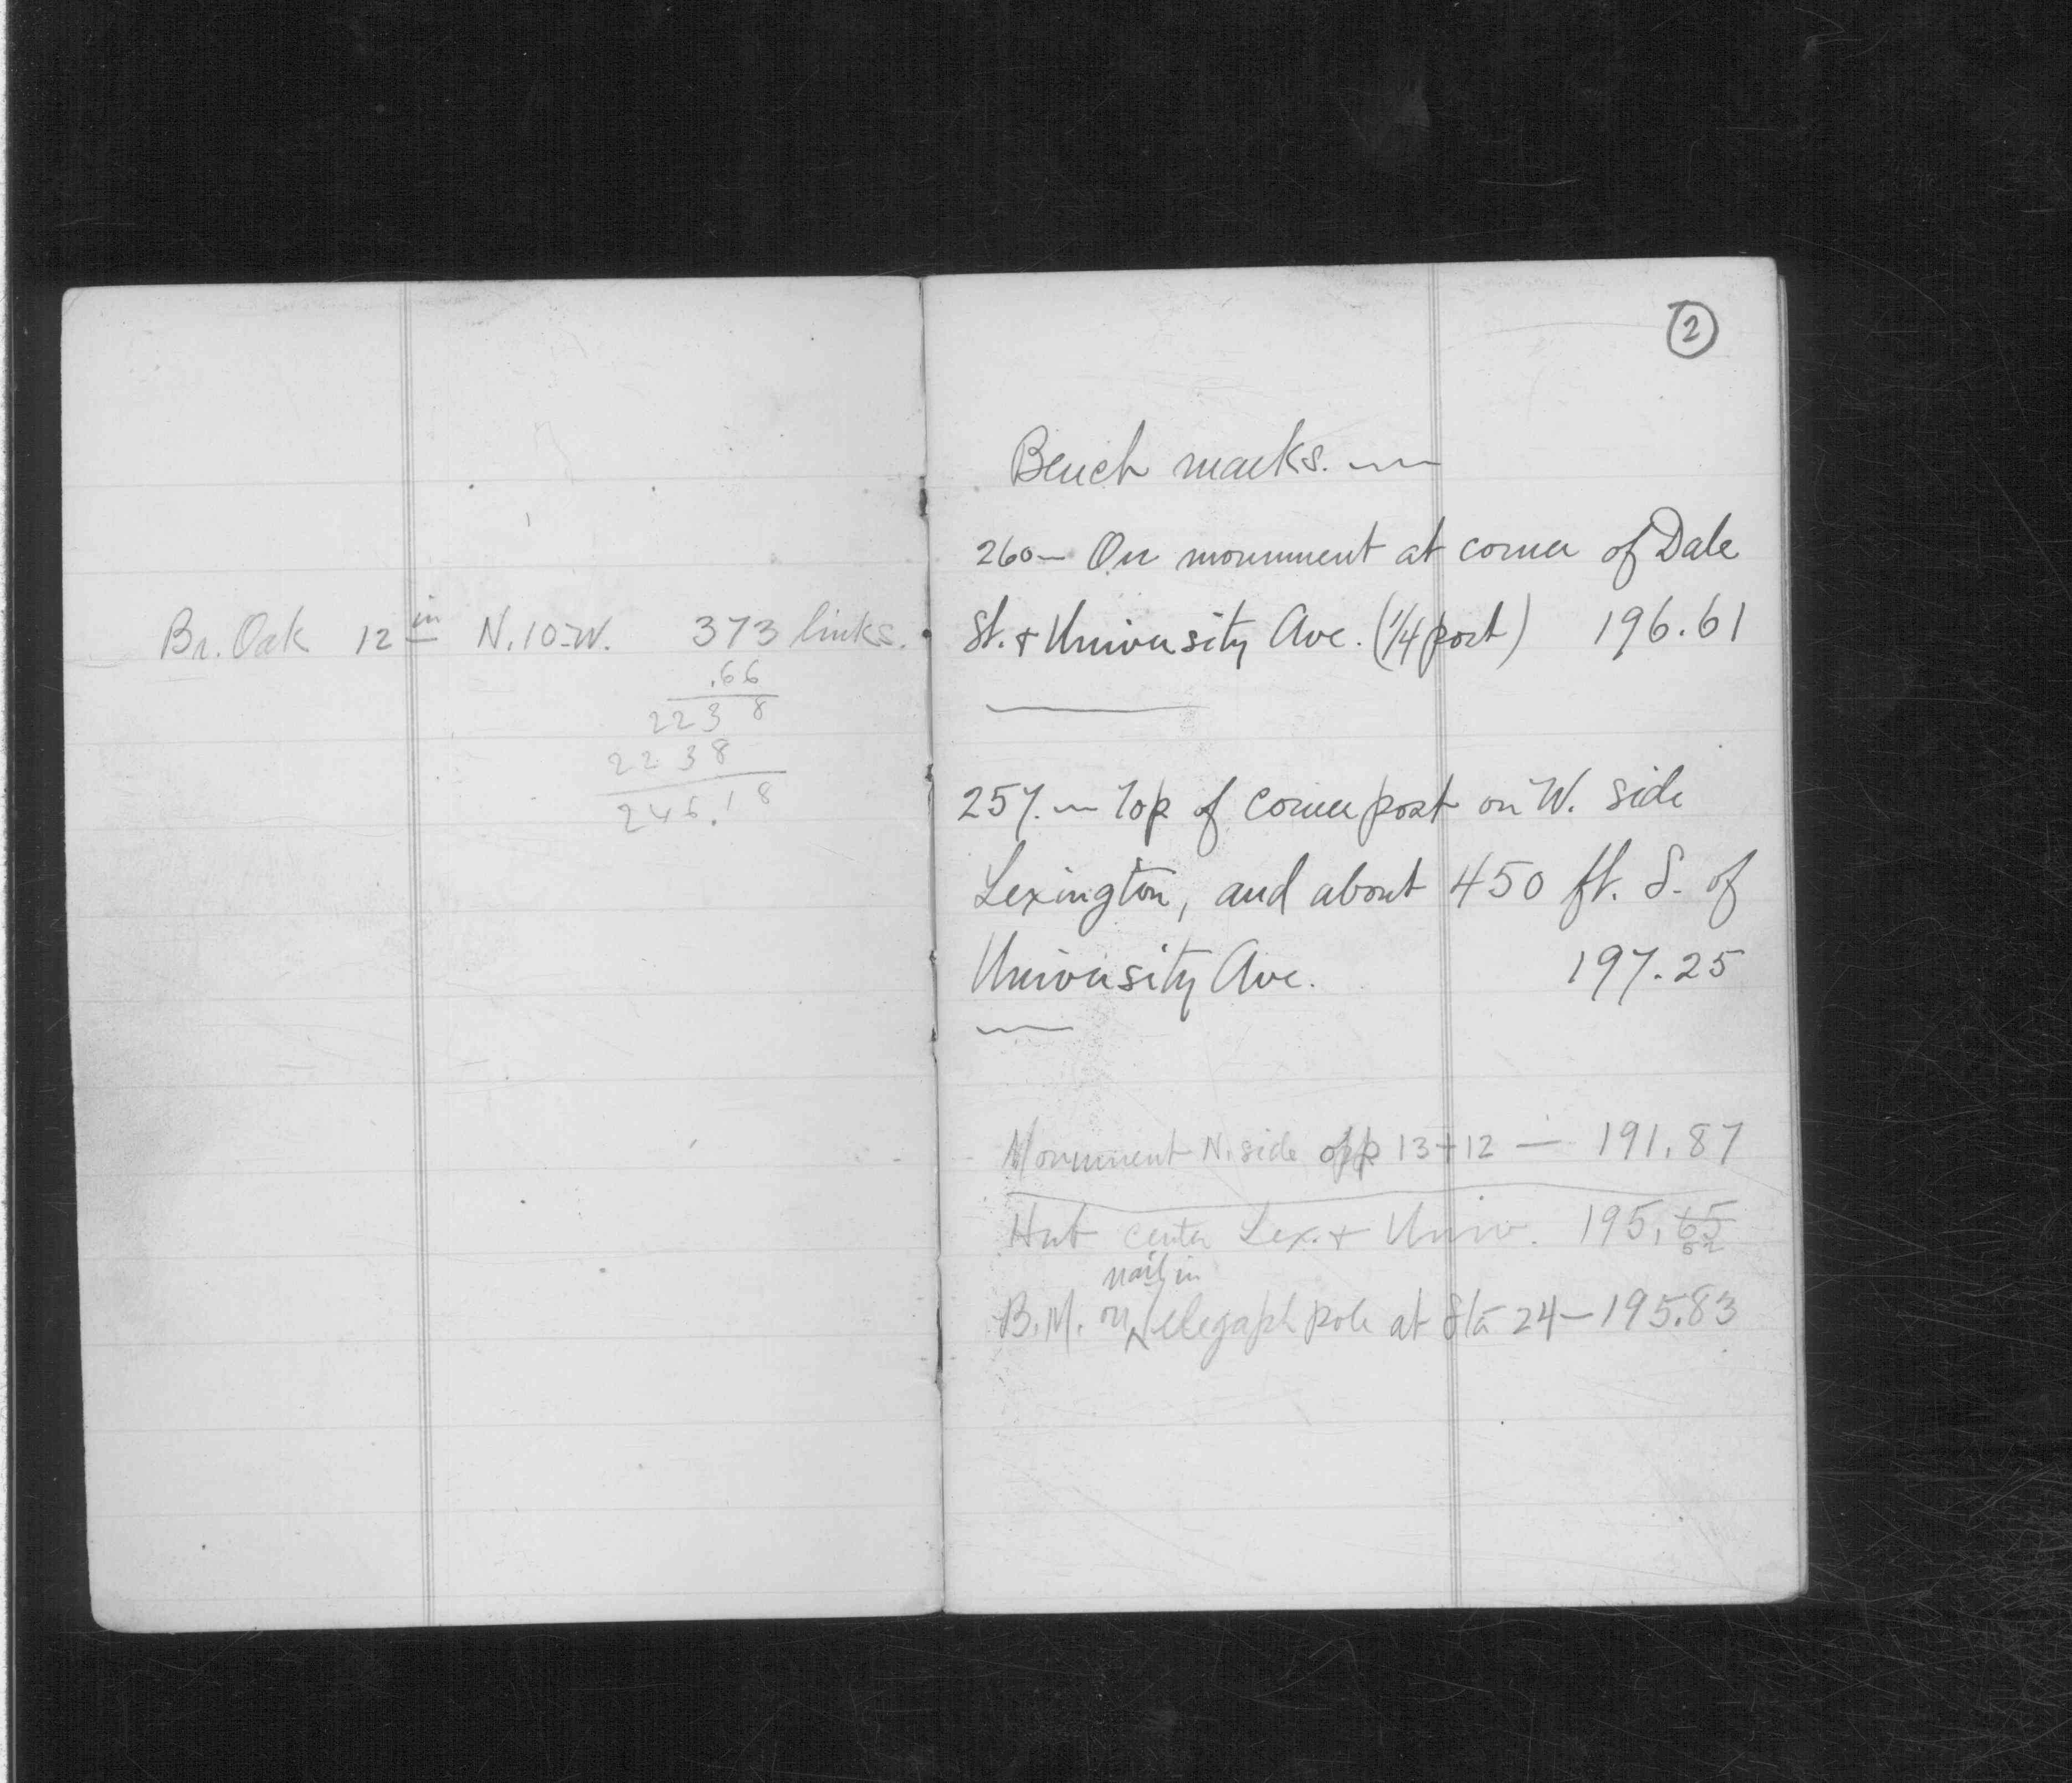 Br. Oak 12 in N. 10 W. 373 links.
.66
2238
2238
246.18
2
Bench marks. —
260 — On monument at corner of Dale
St. + University Ave. (1/4 post) 196.61
257. — Top of corner post on W. side
Lexington, and about 450 ft. S. of
University Ave. 197.25
Monument N. side opp 13+12 — 191.87
Hub center Lex. + Univ. 195.65
52
nail in
B.M. on telegaph pole at Sta 24 — 195.83